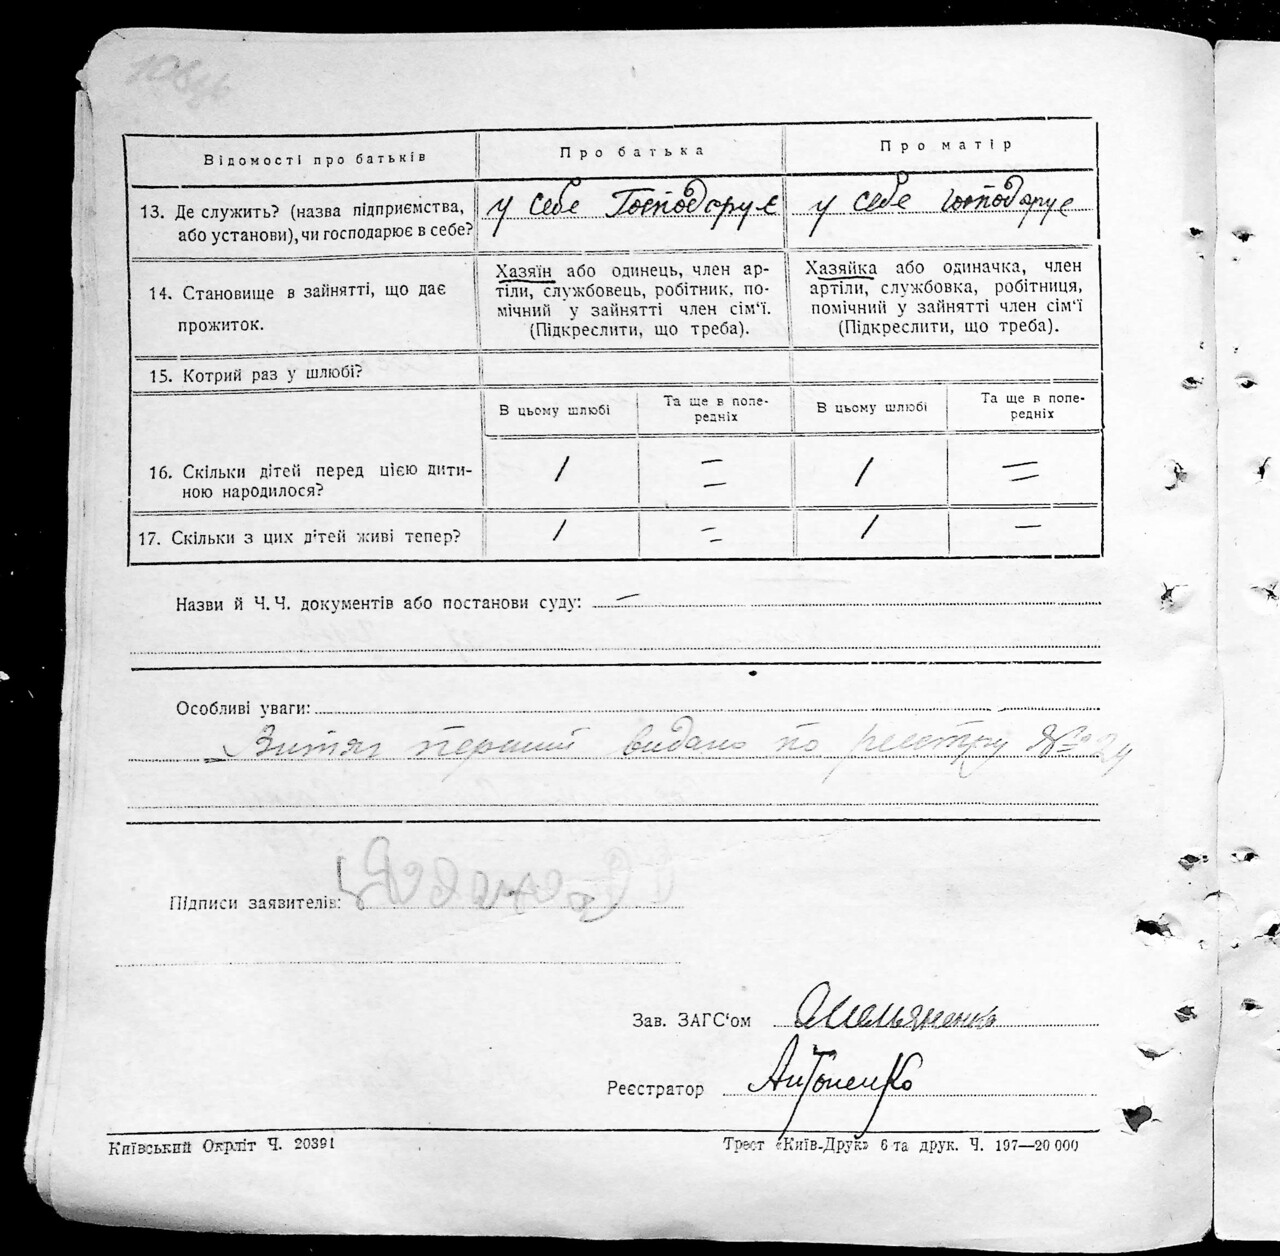 Відомості про батьків
Про батька
Про матір
13. Де служить? (назва підприємства, або установи), чи господарює в себе?
у себе Господарує
у себе господарує
14. Становище в зайнятті, що дає прожиток.
Хазяїн або одинець, член ар-
тілі, службовець, робітник, по-
мічний у зайнятті член сім'ї.
(Підкреслити, що треба).
Хазяйка або одиначка, член
артілі, службовка, робітниця,
помічний у зайнятті член сім'ї
(Підкреслити, що треба).
15. Котрий раз у шлюбі?
В цьому шлюбі
Та ще в попе-
редніх
В цьому шлюбі
Та ще в попе-
редніх
16. Скільки дітей перед цією дити-
ною народилося?
1 = 1 =
17. Скільки з цих дітей живі тепер?
1 = 1 –
Назви й Ч. Ч. документів або постанови суду: –
Особливі уваги:
Витяг перший видано по реєстру № 24
Підписи заявителів:
Зав. ЗАГС'ом Омельяненко
Реєстратор Антоненко
Київський Окрліт Ч. 20391
Трест «Київ-Друк» 6 та друк. Ч. 197—20 000